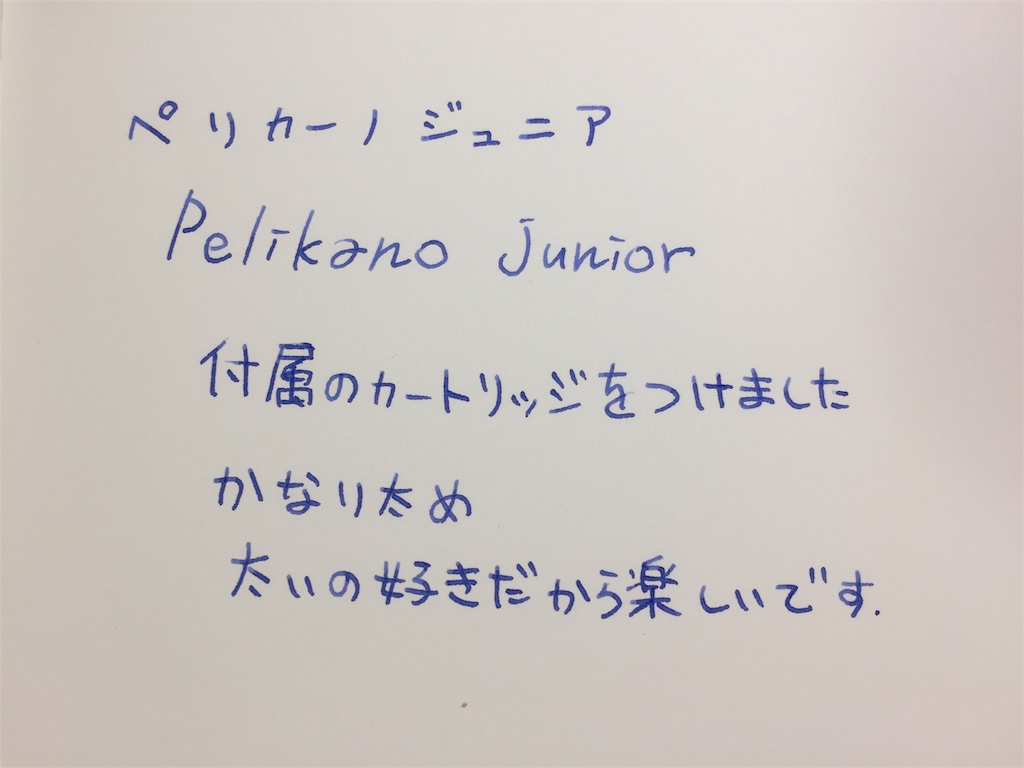 ペリカーノジュニア
Pelikano junior
付属のカートリッジをつけました
かなり太め
太いの好きだから楽しいです.